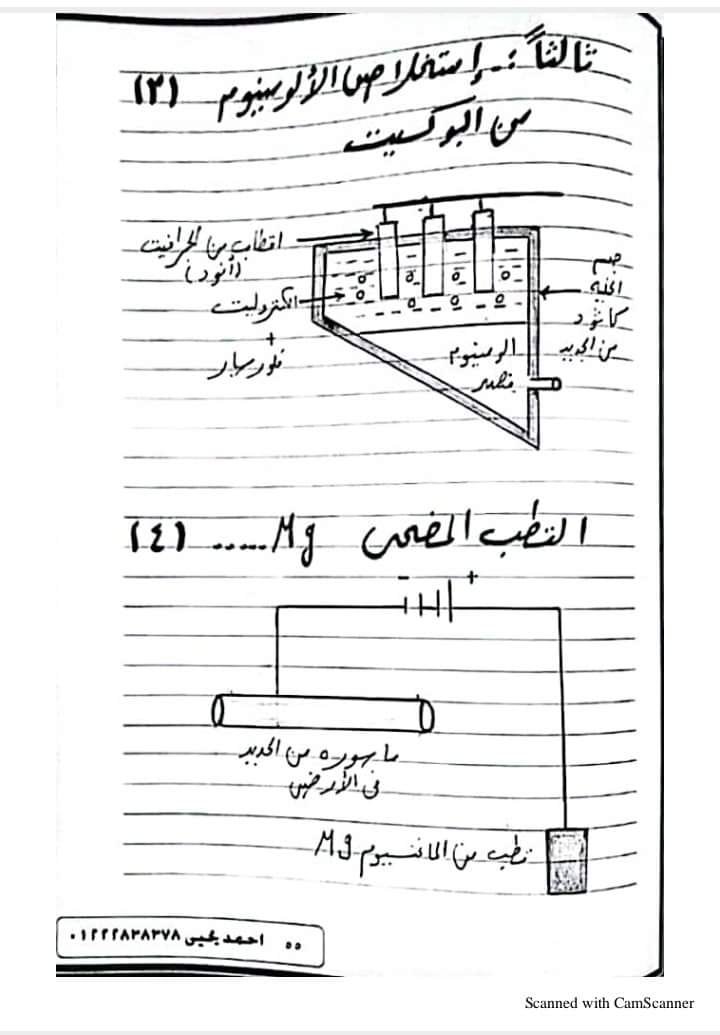 ثالثاً :- إستخلاص الألومنيوم (٣)
من البوكسيت
اقطاب من الجرافيت
(أنود)
الكتروليت
+
فلورسبار
جسم
الخلية
كاثود
من الحديد
الومنيوم
منصهر
القطب المضحى Mg ..... (٤)
- +
ماسورة من الحديد
فى الأرض
قطب من الماغنسيوم Mg
٥٥ احمد يحيى ٠١٢٢٢٨٣٨٣٧٨
Scanned with CamScanner